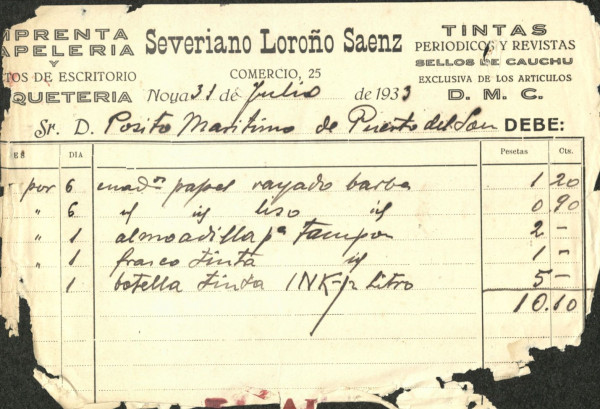 MPRENTA
APELERIA
Y
TOS DE ESCRITORIO
QUETERIA
Severiano Loroño Saenz
COMERCIO, 25
Noya 31 de Julio de 1933
TINTAS
PERIODICOS Y REVISTAS
SELLOS DE CAUCHU
EXCLUSIVA DE LOS ARTICULOS
D. M. C.
Sr. D. Posito Maritimo de Puerto del Son DEBE:
ES DIA Pesetas Cts.
por 6 cuados papel rayado barba 1 20
" 6 id id liso id 0 90
" 1 almoadilla pa tampon 2 -
" 1 frasco tinta id 1 -
1 botella tinta INK-½ Litro 5 -
10.10